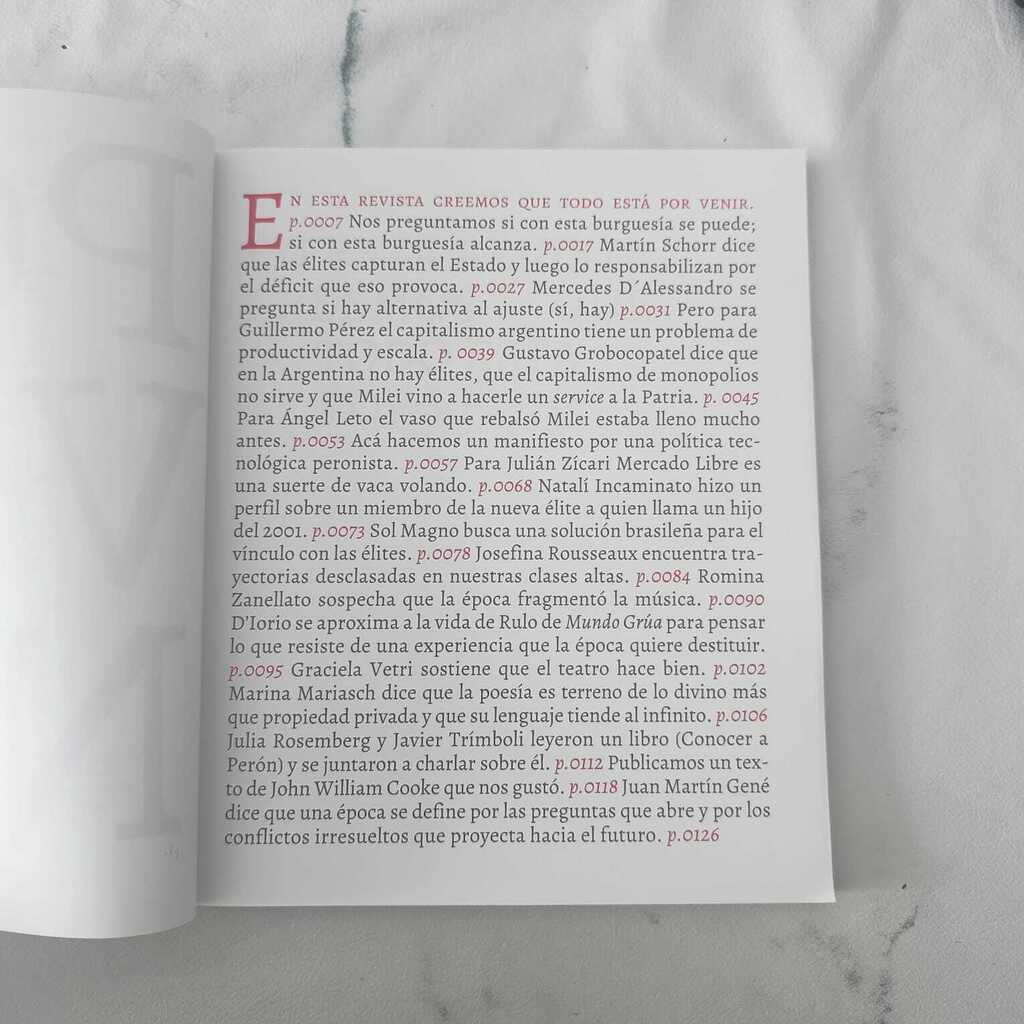 EN ESTA REVISTA CREEMOS QUE TODO ESTÁ POR VENIR.
p.0007 Nos preguntamos si con esta burguesía se puede;
si con esta burguesía alcanza. p.0017 Martín Schorr dice
que las élites capturan el Estado y luego lo responsabilizan por
el déficit que eso provoca. p.0027 Mercedes D´Alessandro se
pregunta si hay alternativa al ajuste (sí, hay) p.0031 Pero para
Guillermo Pérez el capitalismo argentino tiene un problema de
productividad y escala. p. 0039 Gustavo Grobocopatel dice que
en la Argentina no hay élites, que el capitalismo de monopolios
no sirve y que Milei vino a hacerle un service a la Patria. p. 0045
Para Ángel Leto el vaso que rebalsó Milei estaba lleno mucho
antes. p.0053 Acá hacemos un manifiesto por una política tec-
nológica peronista. p.0057 Para Julián Zícari Mercado Libre es
una suerte de vaca volando. p.0068 Natalí Incaminato hizo un
perfil sobre un miembro de la nueva élite a quien llama un hijo
del 2001. p.0073 Sol Magno busca una solución brasileña para el
vínculo con las élites. p.0078 Josefina Rousseaux encuentra tra-
yectorias desclasadas en nuestras clases altas. p.0084 Romina
Zanellato sospecha que la época fragmentó la música. p.0090
D'Iorio se aproxima a la vida de Rulo de Mundo Grúa para pensar
lo que resiste de una experiencia que la época quiere destituir.
p.0095 Graciela Vetri sostiene que el teatro hace bien. p.0102
Marina Mariasch dice que la poesía es terreno de lo divino más
que propiedad privada y que su lenguaje tiende al infinito. p.0106
Julia Rosemberg y Javier Trímboli leyeron un libro (Conocer a
Perón) y se juntaron a charlar sobre él. p.0112 Publicamos un tex-
to de John William Cooke que nos gustó. p.0118 Juan Martín Gené
dice que una época se define por las preguntas que abre y por los
conflictos irresueltos que proyecta hacia el futuro. p.0126